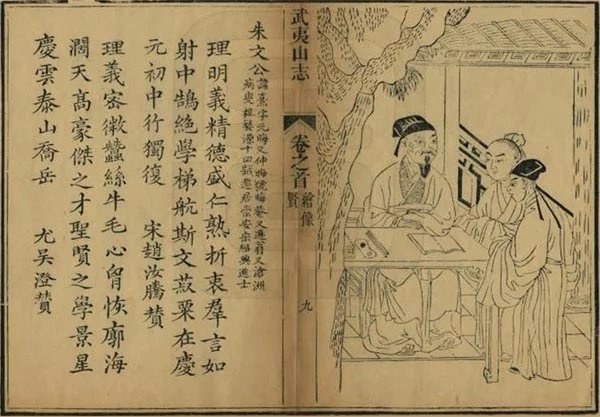 武夷山志
卷之首
繪像
賢
九
朱文公
諱熹字元晦又仲晦號晦菴又遯翁又滄洲
病叟祖婺源十四歲遷居崇安宋紹興進士
理明義精德盛仁熟折衷羣言如
射中鵠絶學梯航斯文菽粟在慶
元初中行獨復 宋趙汝騰贊
理義密微蠶絲牛毛心胷恢廓海
濶天高豪傑之才聖賢之學景星
慶雲泰山喬岳 尤吳澄贊